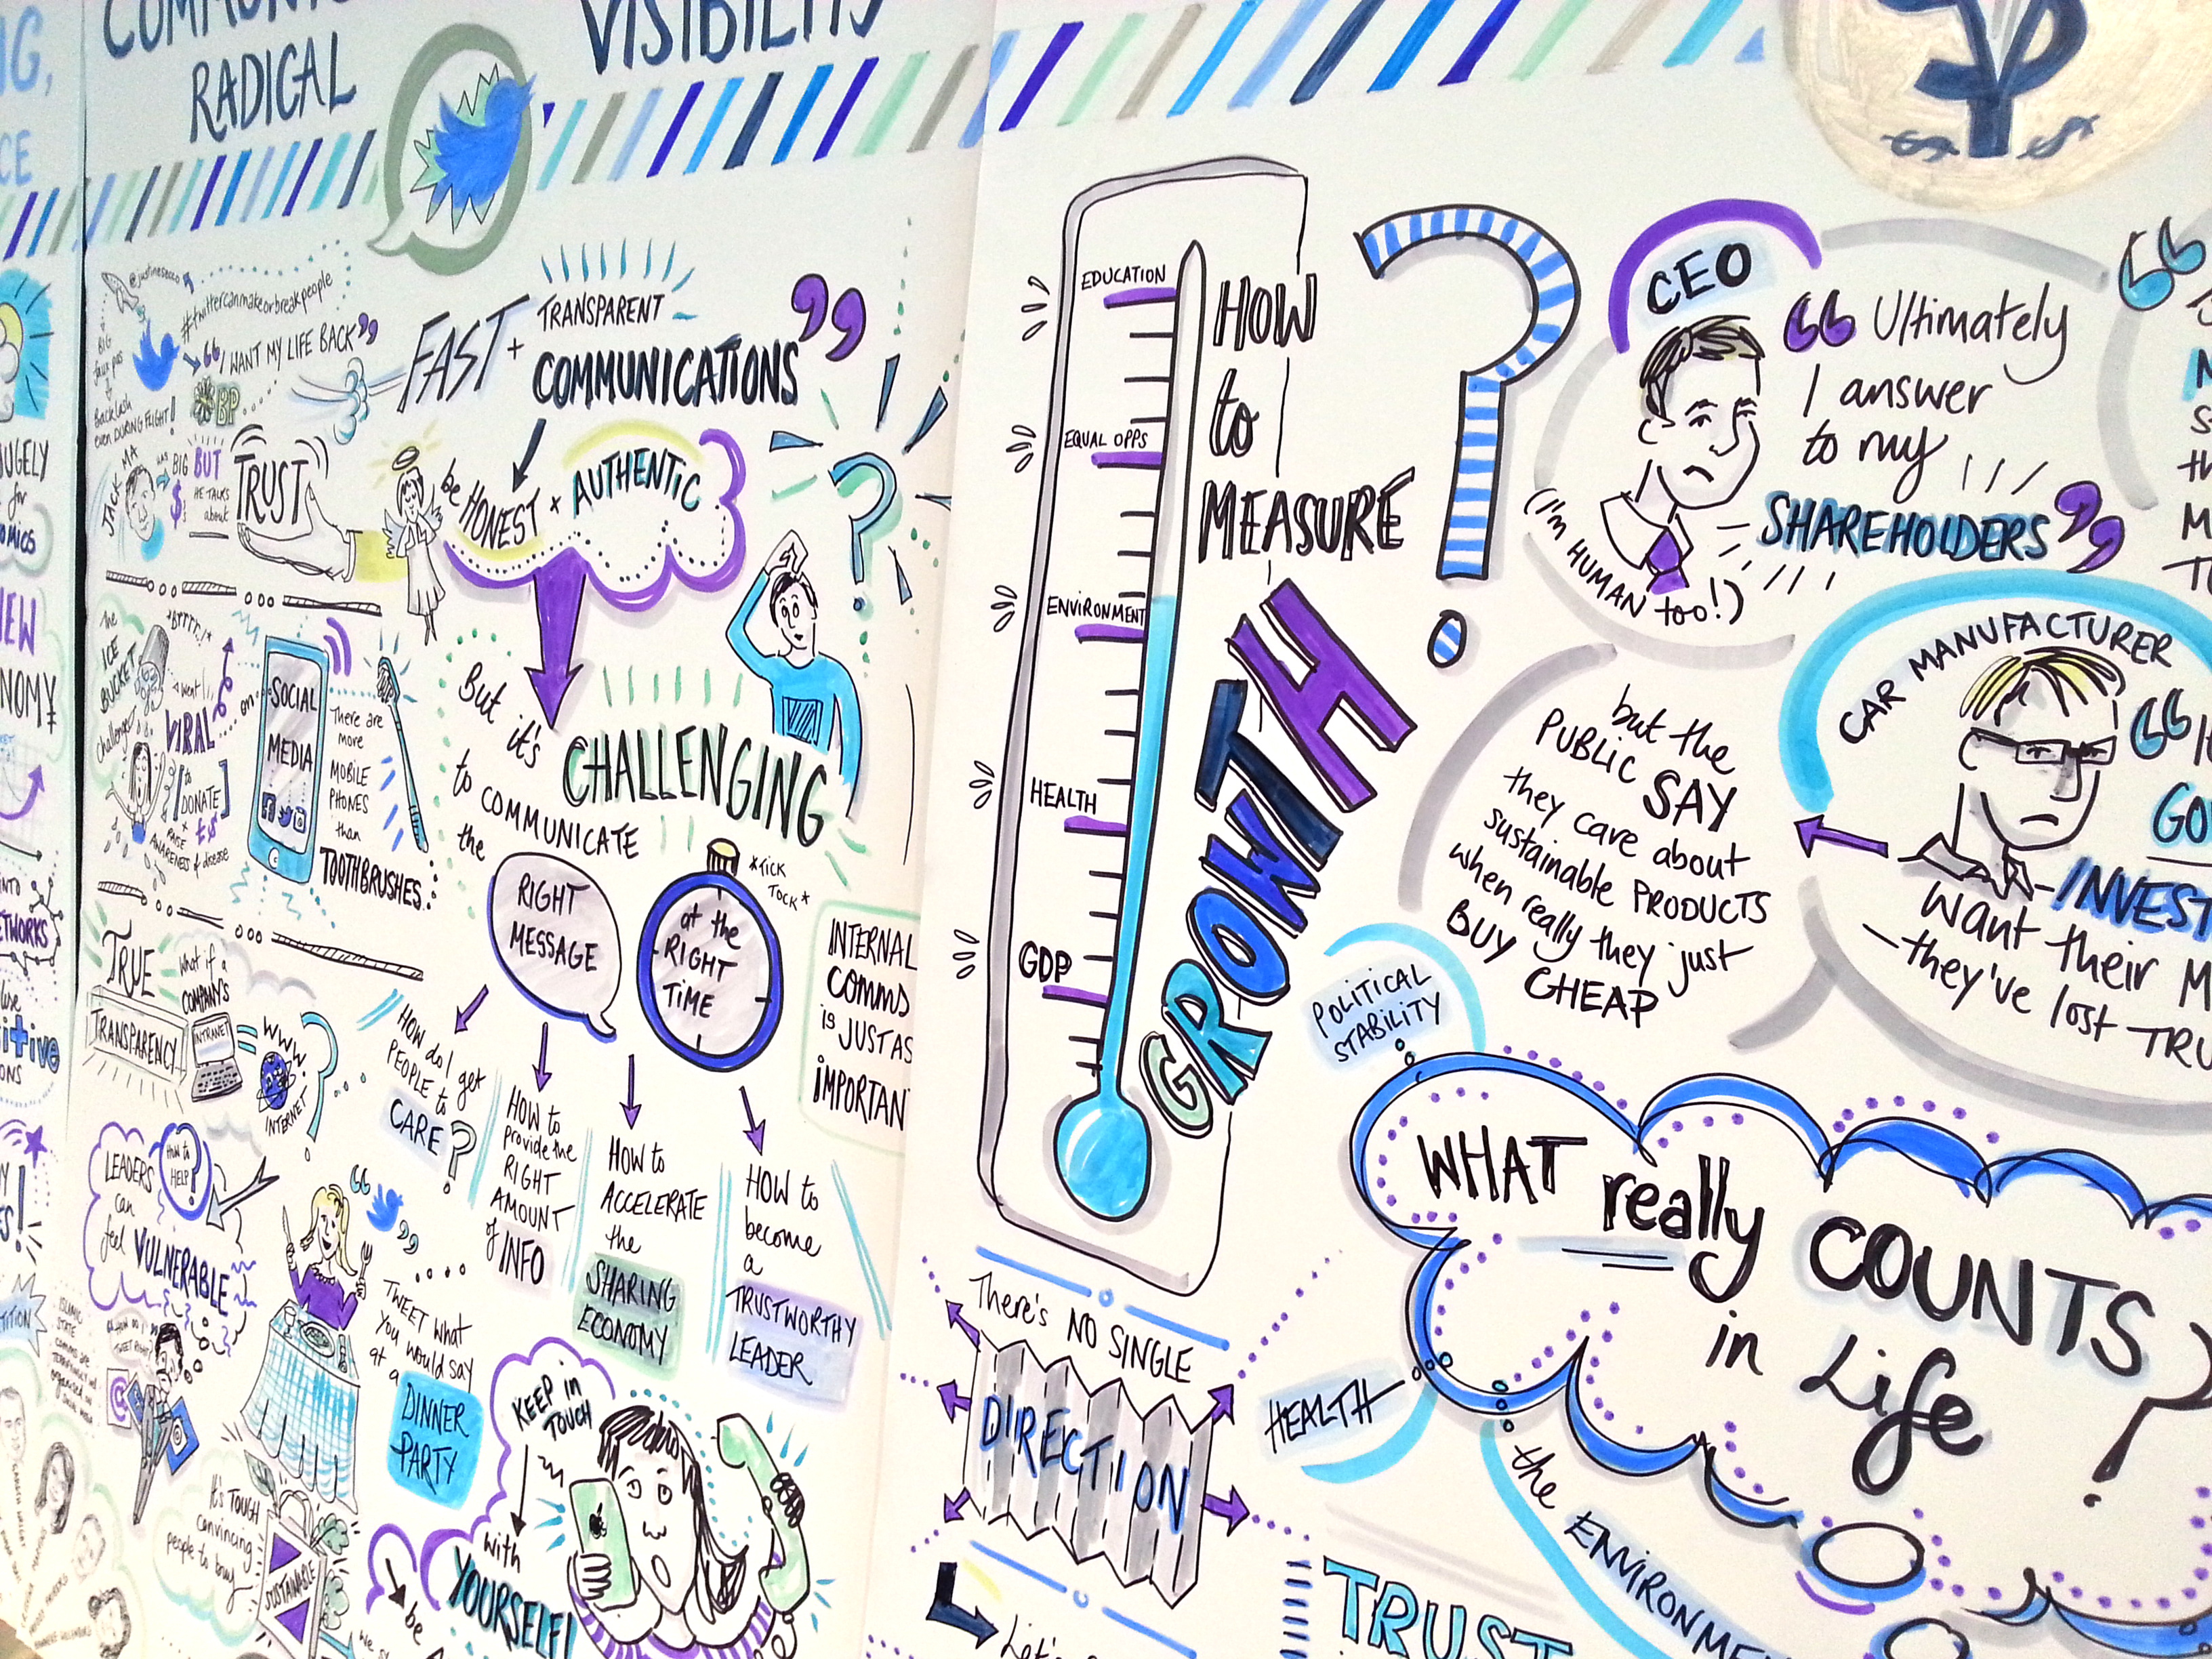 RADICAL
VISIBILITY
@justinesacco
#twittercanmakeorbreakpeople
BIG
faux pas
&
Backlash
even DURING FLIGHT!
"I WANT MY LIFE BACK"
BP
FAST + TRANSPARENT
COMMUNICATIONS"
JACK MA
HAS
BIG
$
BUT
HE TALKS
about
TRUST
be HONEST + AUTHENTIC
the
ICE
BUCKET
Challenge
*BRRRR..!*
went
VIRAL
on
[to
DONATE]
+ RAISE
AWARENESS of disease
SOCIAL
MEDIA
There are
more
MOBILE
PHONES
than
TOOTHBRUSHES
But it's
CHALLENGING
to COMMUNICATE
the
RIGHT
MESSAGE
at the
RIGHT
TIME
*TICK
TOCK*
INTERNAL
COMMS
is JUST AS
IMPORTAN
TRUE
TRANSPARENCY
what if a
COMPANY'S
INTRANET
=
WWW
INTERNET
?
HOW do I get
PEOPLE to
CARE?
HOW to
provide the
RIGHT
AMOUNT
of INFO
HOW to
ACCELERATE
the
SHARING
ECONOMY
HOW to
become
a
TRUSTWORTHY
LEADER
LEADERS
can
feel VULNERABLE
HOW to
HELP?
TWEET what
you would say
at a
DINNER
PARTY
KEEP in
TOUCH
with
YOURSELF!
It's TOUGH
convincing
people to buy
SUSTAINABLE
be
JUGELY
for
NEW
NOMY
INTO
ETWORKS
itive
ONS
EDUCATION
EQUAL OPPS
ENVIRONMENT
HEALTH
GDP
HOW
to
MEASURE
GROWTH
?
CEO
"Ultimately
I answer
to my
SHAREHOLDERS"
(I'm HUMAN too!)
but the
PUBLIC SAY
they care about
sustainable PRODUCTS
when really they just
BUY CHEAP
CAR MANUFACTURER
GO
INVEST
want their M
– they've lost TRU
POLITICAL
STABILITY
WHAT really COUNTS
in Life?
HEALTH
the ENVIRONME
There's NO SINGLE
DIRECTION
Let's
TRUST